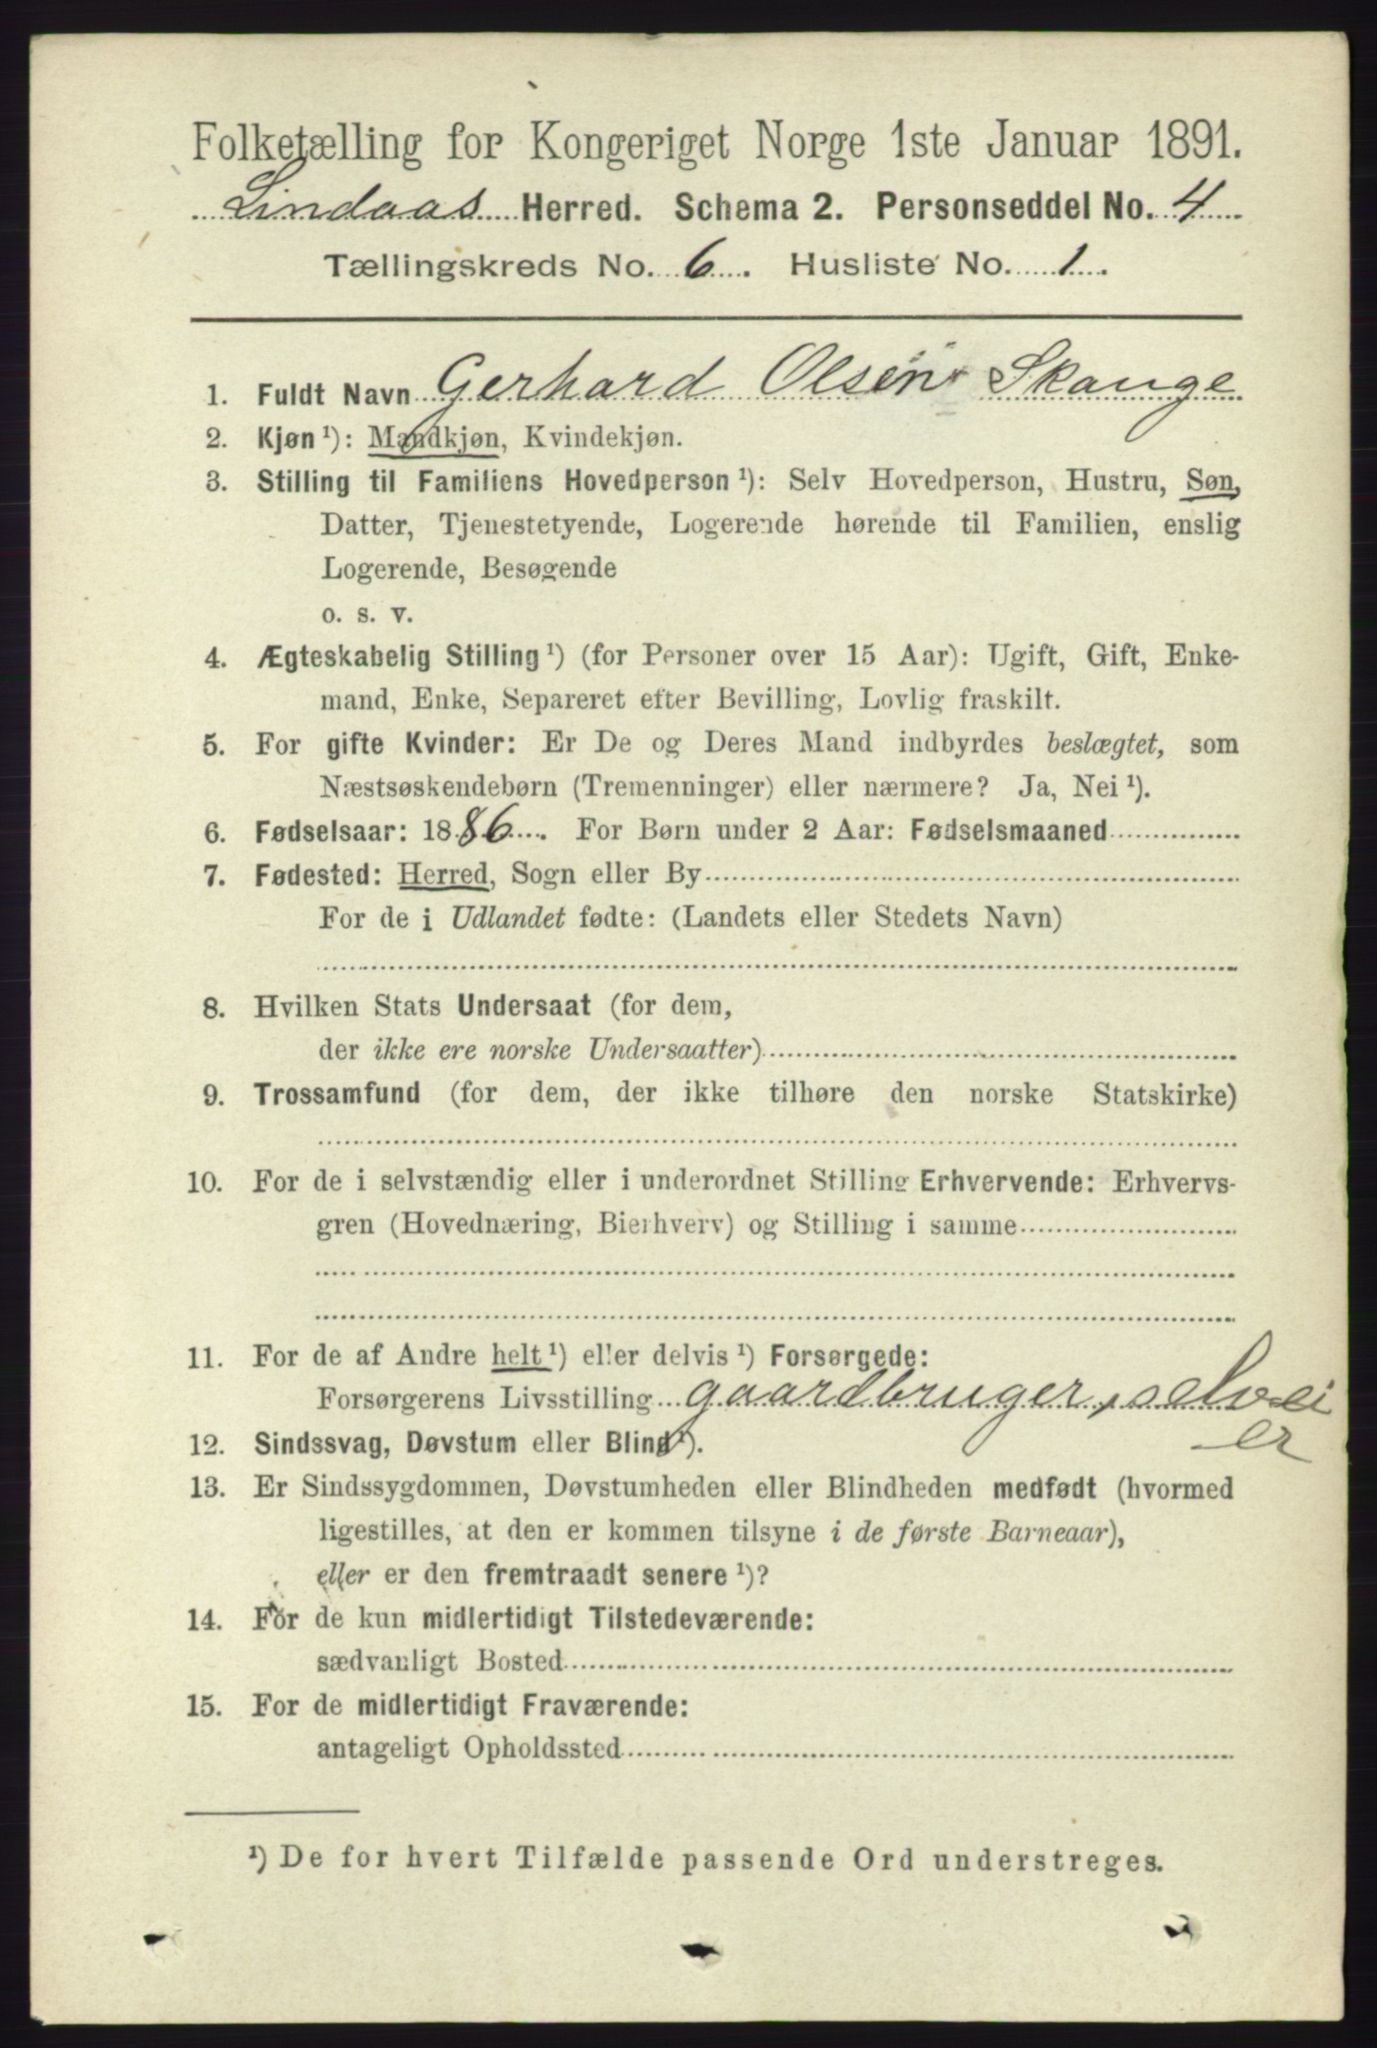 Folketælling for Kongeriget Norge 1ste Januar 1891.
Lindaas Herred. Schema 2. Personseddel No. 4
Tællingskreds No. 6. Husliste No. 1.
1. Fuldt Navn Gerhard Olsen Skauge
2. Kjøn ¹): Mandkjøn, Kvindekjøn.
3. Stilling til Familiens Hovedperson ¹): Selv Hovedperson, Hustru, Søn,
Datter, Tjenestetyende, Logerende hørende til Familien, enslig
Logerende, Besøgende
o. s. v.
4. Ægteskabelig Stilling ¹) (for Personer over 15 Aar): Ugift, Gift, Enke-
mand, Enke, Separeret efter Bevilling, Lovlig fraskilt.
5. For gifte Kvinder: Er De og Deres Mand indbyrdes beslægtet, som
Næstsøskendebørn (Tremenninger) eller nærmere? Ja, Nei ¹).
6. Fødselsaar: 1886. For Børn under 2 Aar: Fødselsmaaned
7. Fødested: Herred, Sogn eller By
For de i Udlandet fødte: (Landets eller Stedets Navn)
8. Hvilken Stats Undersaat (for dem,
der ikke ere norske Undersaatter)
9. Trossamfund (for dem, der ikke tilhøre den norske Statskirke)
10. For de i selvstændig eller i underordnet Stilling Erhvervende: Erhvervs-
gren (Hovednæring, Bierhverv) og Stilling i samme
11. For de af Andre helt ¹) eller delvis ¹) Forsørgede:
Forsørgerens Livsstilling gaardbruger, selvei
er
12. Sindssvag, Døvstum eller Blind ¹).
13. Er Sindssygdommen, Døvstumheden eller Blindheden medfødt (hvormed
ligestilles, at den er kommen tilsyne i de første Barneaar),
eller er den fremtraadt senere ¹)?
14. For de kun midlertidigt Tilstedeværende:
sædvanligt Bosted
15. For de midlertidigt Fraværende:
antageligt Opholdssted
¹) De for hvert Tilfælde passende Ord understreges.